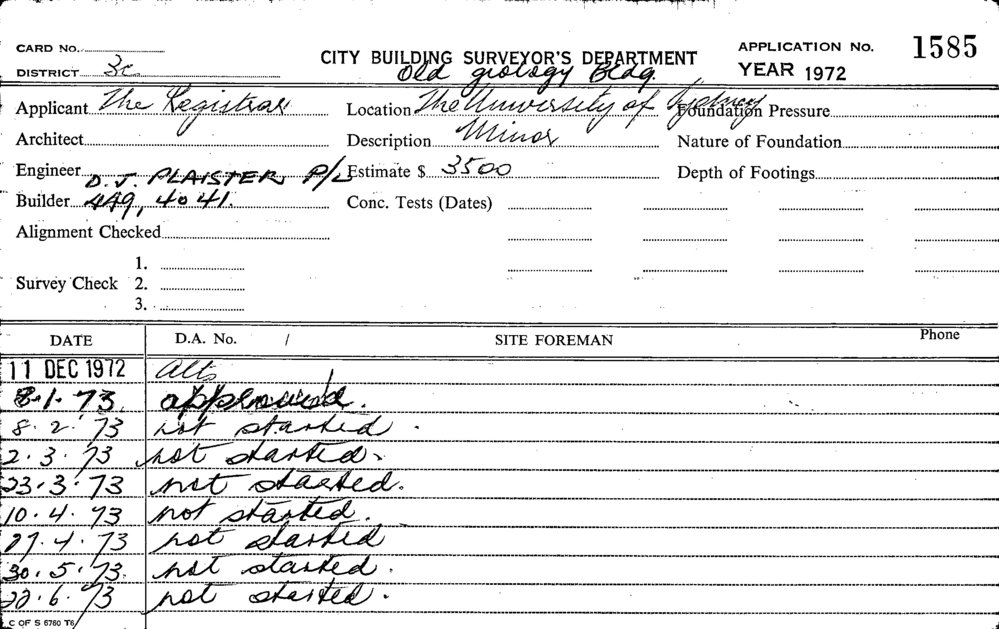 CARD No.
CITY BUILDING SURVEYOR'S DEPARTMENT
APPLICATION No. 1585
DISTRICT 3c
Old geology Bldg.
YEAR 1972
Applicant The Registrar
Location The University of Sydney
Foundation Pressure
Architect
Description Minor
Nature of Foundation
Engineer D. J. PLAISTER P/L
Estimate $ 3500
Depth of Footings
Builder 449, 4041.
Conc. Tests (Dates)
Alignment Checked
1.
Survey Check 2.
3.
DATE D.A. No. / SITE FOREMAN Phone
11 DEC 1972 Alts
8.1.73. approved.
8.2.73 not started.
2.3.73 not started.
23.3.73 not started.
10.4.73 not started.
27.4.73 not started
30.5.73. not started.
22.6.73 not started.
C OF S 6760 T6